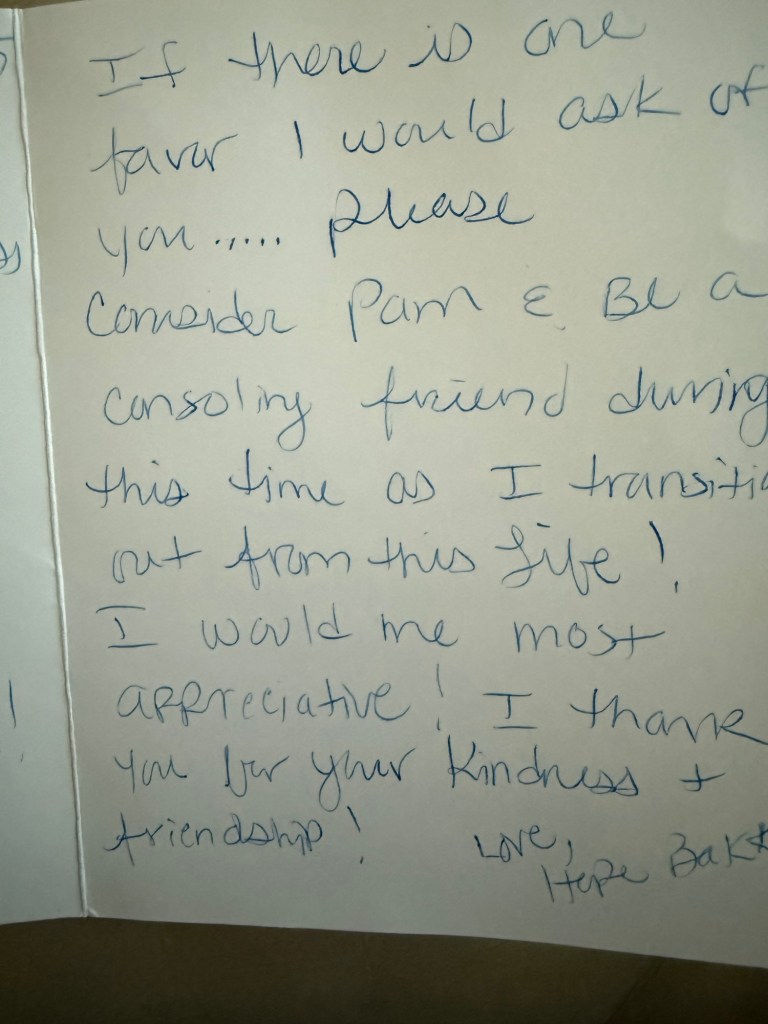 If there is one
favor I would ask of
you..... please
Consider Pam & Be a
consoling friend during
this time as I transitio
out from this Life!
I would me most
appreciative! I thank
you for your kindness +
friendship!
Love,
Hope